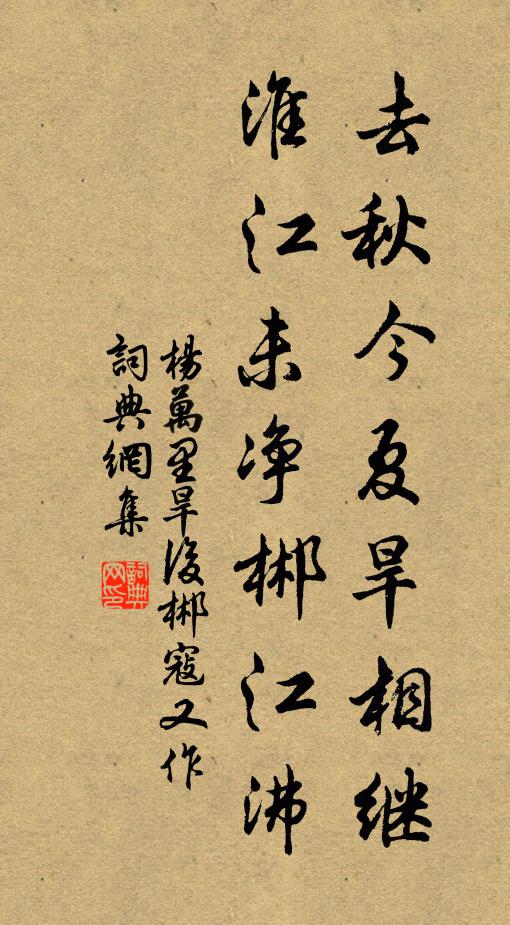 去秋今夏旱相继
淮江未净郴江沸
楊萬里旱後郴寇又作
詞典網集
詞典网印